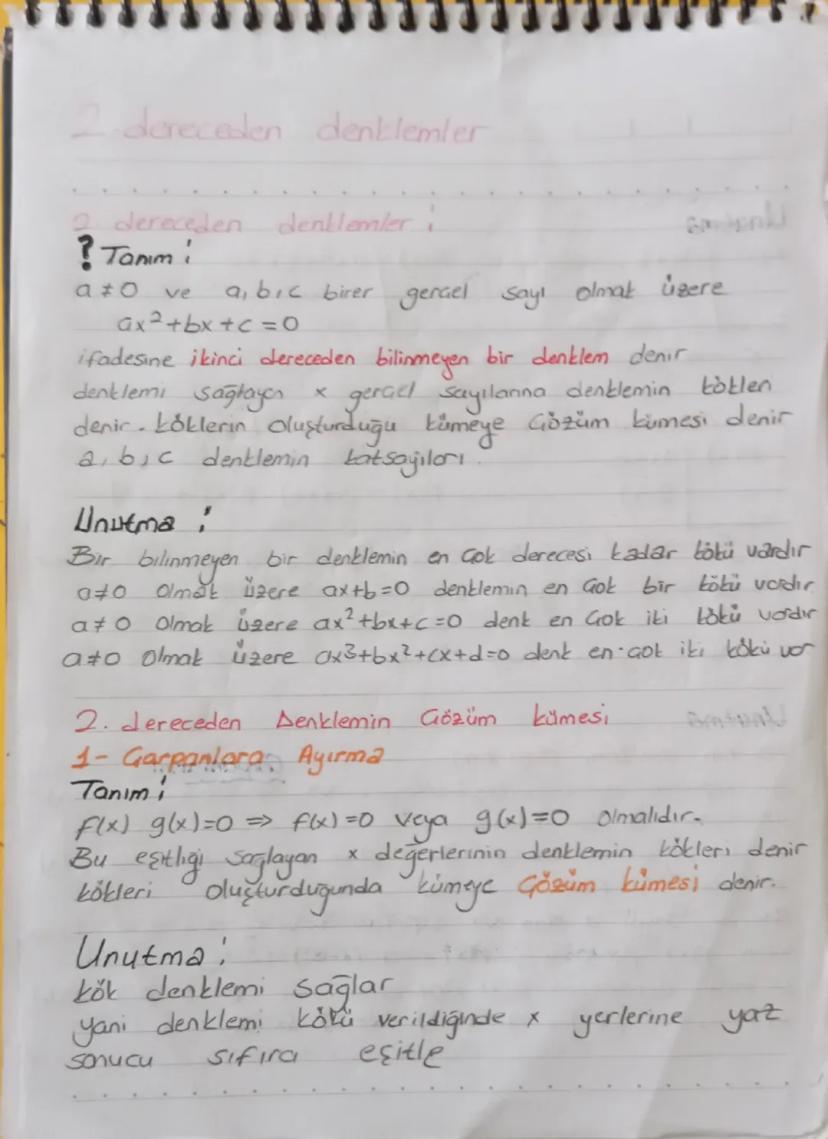 2. dereceden denklemler
2. dereceden denklemler :
? Tanım :
a≠0 ve a,b,c birer gercel sayı olmak üzere
ax²+bx+c=0
ifadesine ikinci dereceden bilinmeyen bir denklem denir
denklemi sağlayan x gercel sayılarına denklemin kökleri
denir. köklerin oluşturduğu kümeye Gözüm kümesi denir
a,b,c denklemin katsayıları.
Unutma !
Bir bilinmeyen bir denklemin en Gok derecesi kadar kökü vardır
a≠0 olmak üzere ax+b=0 denklemin en Gok bir kökü vardır
a≠0 olmak üzere ax²+bx+c=0 denk en Gok iki kökü vardır
a≠0 olmak üzere ax³+bx²+cx+d=0 denk en Gok iki kökü var
2. dereceden Denklemin Gözüm kümesi
1- Garpanlara Ayırma
Tanım :
f(x) g(x)=0 ⇒ f(x)=0 veya g(x)=0 olmalıdır.
Bu eşitliği sağlayan x değerlerinin denklemin kökleri denir
kökleri oluşturduğunda kümeye Gözüm kümesi denir.
Unutma :
kök denklemi sağlar
yani denklemi kökü verildiğinde x yerlerine yaz
sonucu sıfıra eşitle